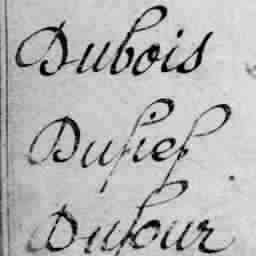 Dubois
Dufief
Dufour